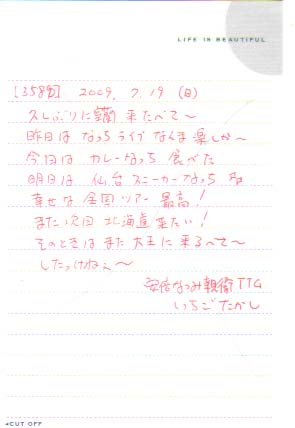 LIFE IS BEAUTIFUL
2009. 7. 19 (日)
久しぶりに 来たべて〜
昨日は なっち ライブ 楽しか〜
今日は カレーなっち 食べた
明日は 仙台 スニーカーなっち
幸せな 全国ツアー 最高!
また 次回 北海道 来たい!
そのときは また 大王に 来るべて〜
したっけねぇ〜
安倍なつみ親衛TTG
いちごたかし
◂CUT OFF